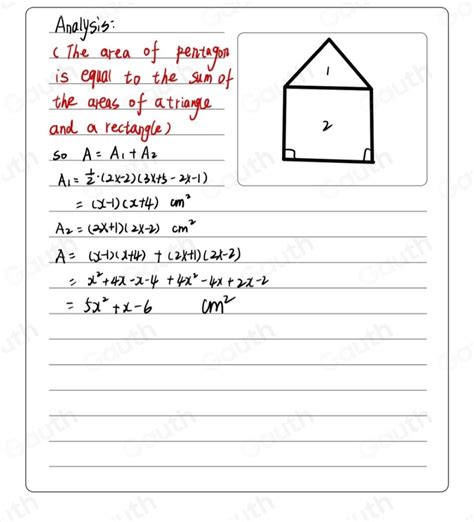 Analysis:
(The area of pentagon
is equal to the sum of
the areas of a triangle
and a rectangle)
1
2
so A = A₁ + A₂
A₁ = 1/2 · (2x-2)(3x+5-2x-1)
= (x-1)(x+4) cm²
A₂ = (2x+1)(2x-2) cm²
A = (x-1)(x+4) + (2x+1)(2x-2)
= x²+4x-x-4 + 4x²-4x+2x-2
= 5x²+x-6 cm²
Gauth